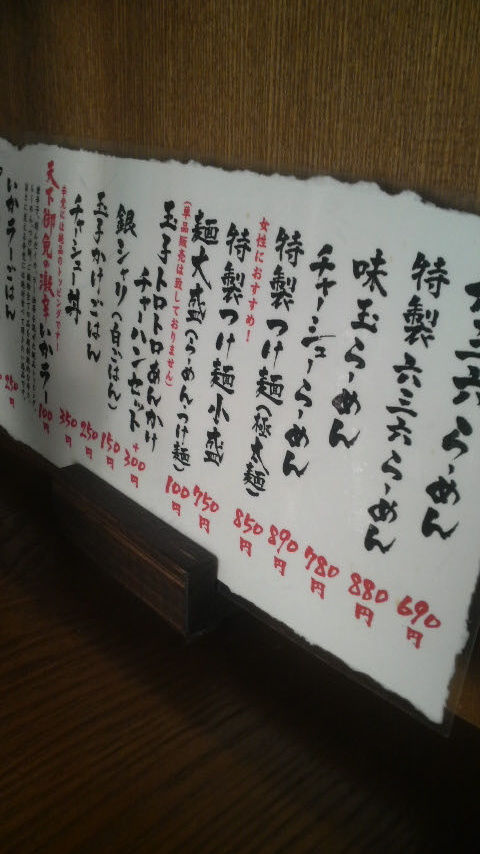 六三六らーめん 690円
特製六三六らーめん 880円
味玉らーめん 780円
チャーシューらーめん 890円
特製つけ麺(極太麺) 850円
女性におすすめ!
特製つけ麺小盛 750円
麺大盛(らーめん・つけ麺) 100円
(単品販売は致しておりません)
玉子トロトロあんかけ
チャーハンセット +300円
銀シャリ(白ごはん) 150円
玉子かけごはん 250円
チャーシュー丼 350円
辛党には絶品のトッピングです!
天下御免の激辛いかラー 100円
いかラーごはん 250円